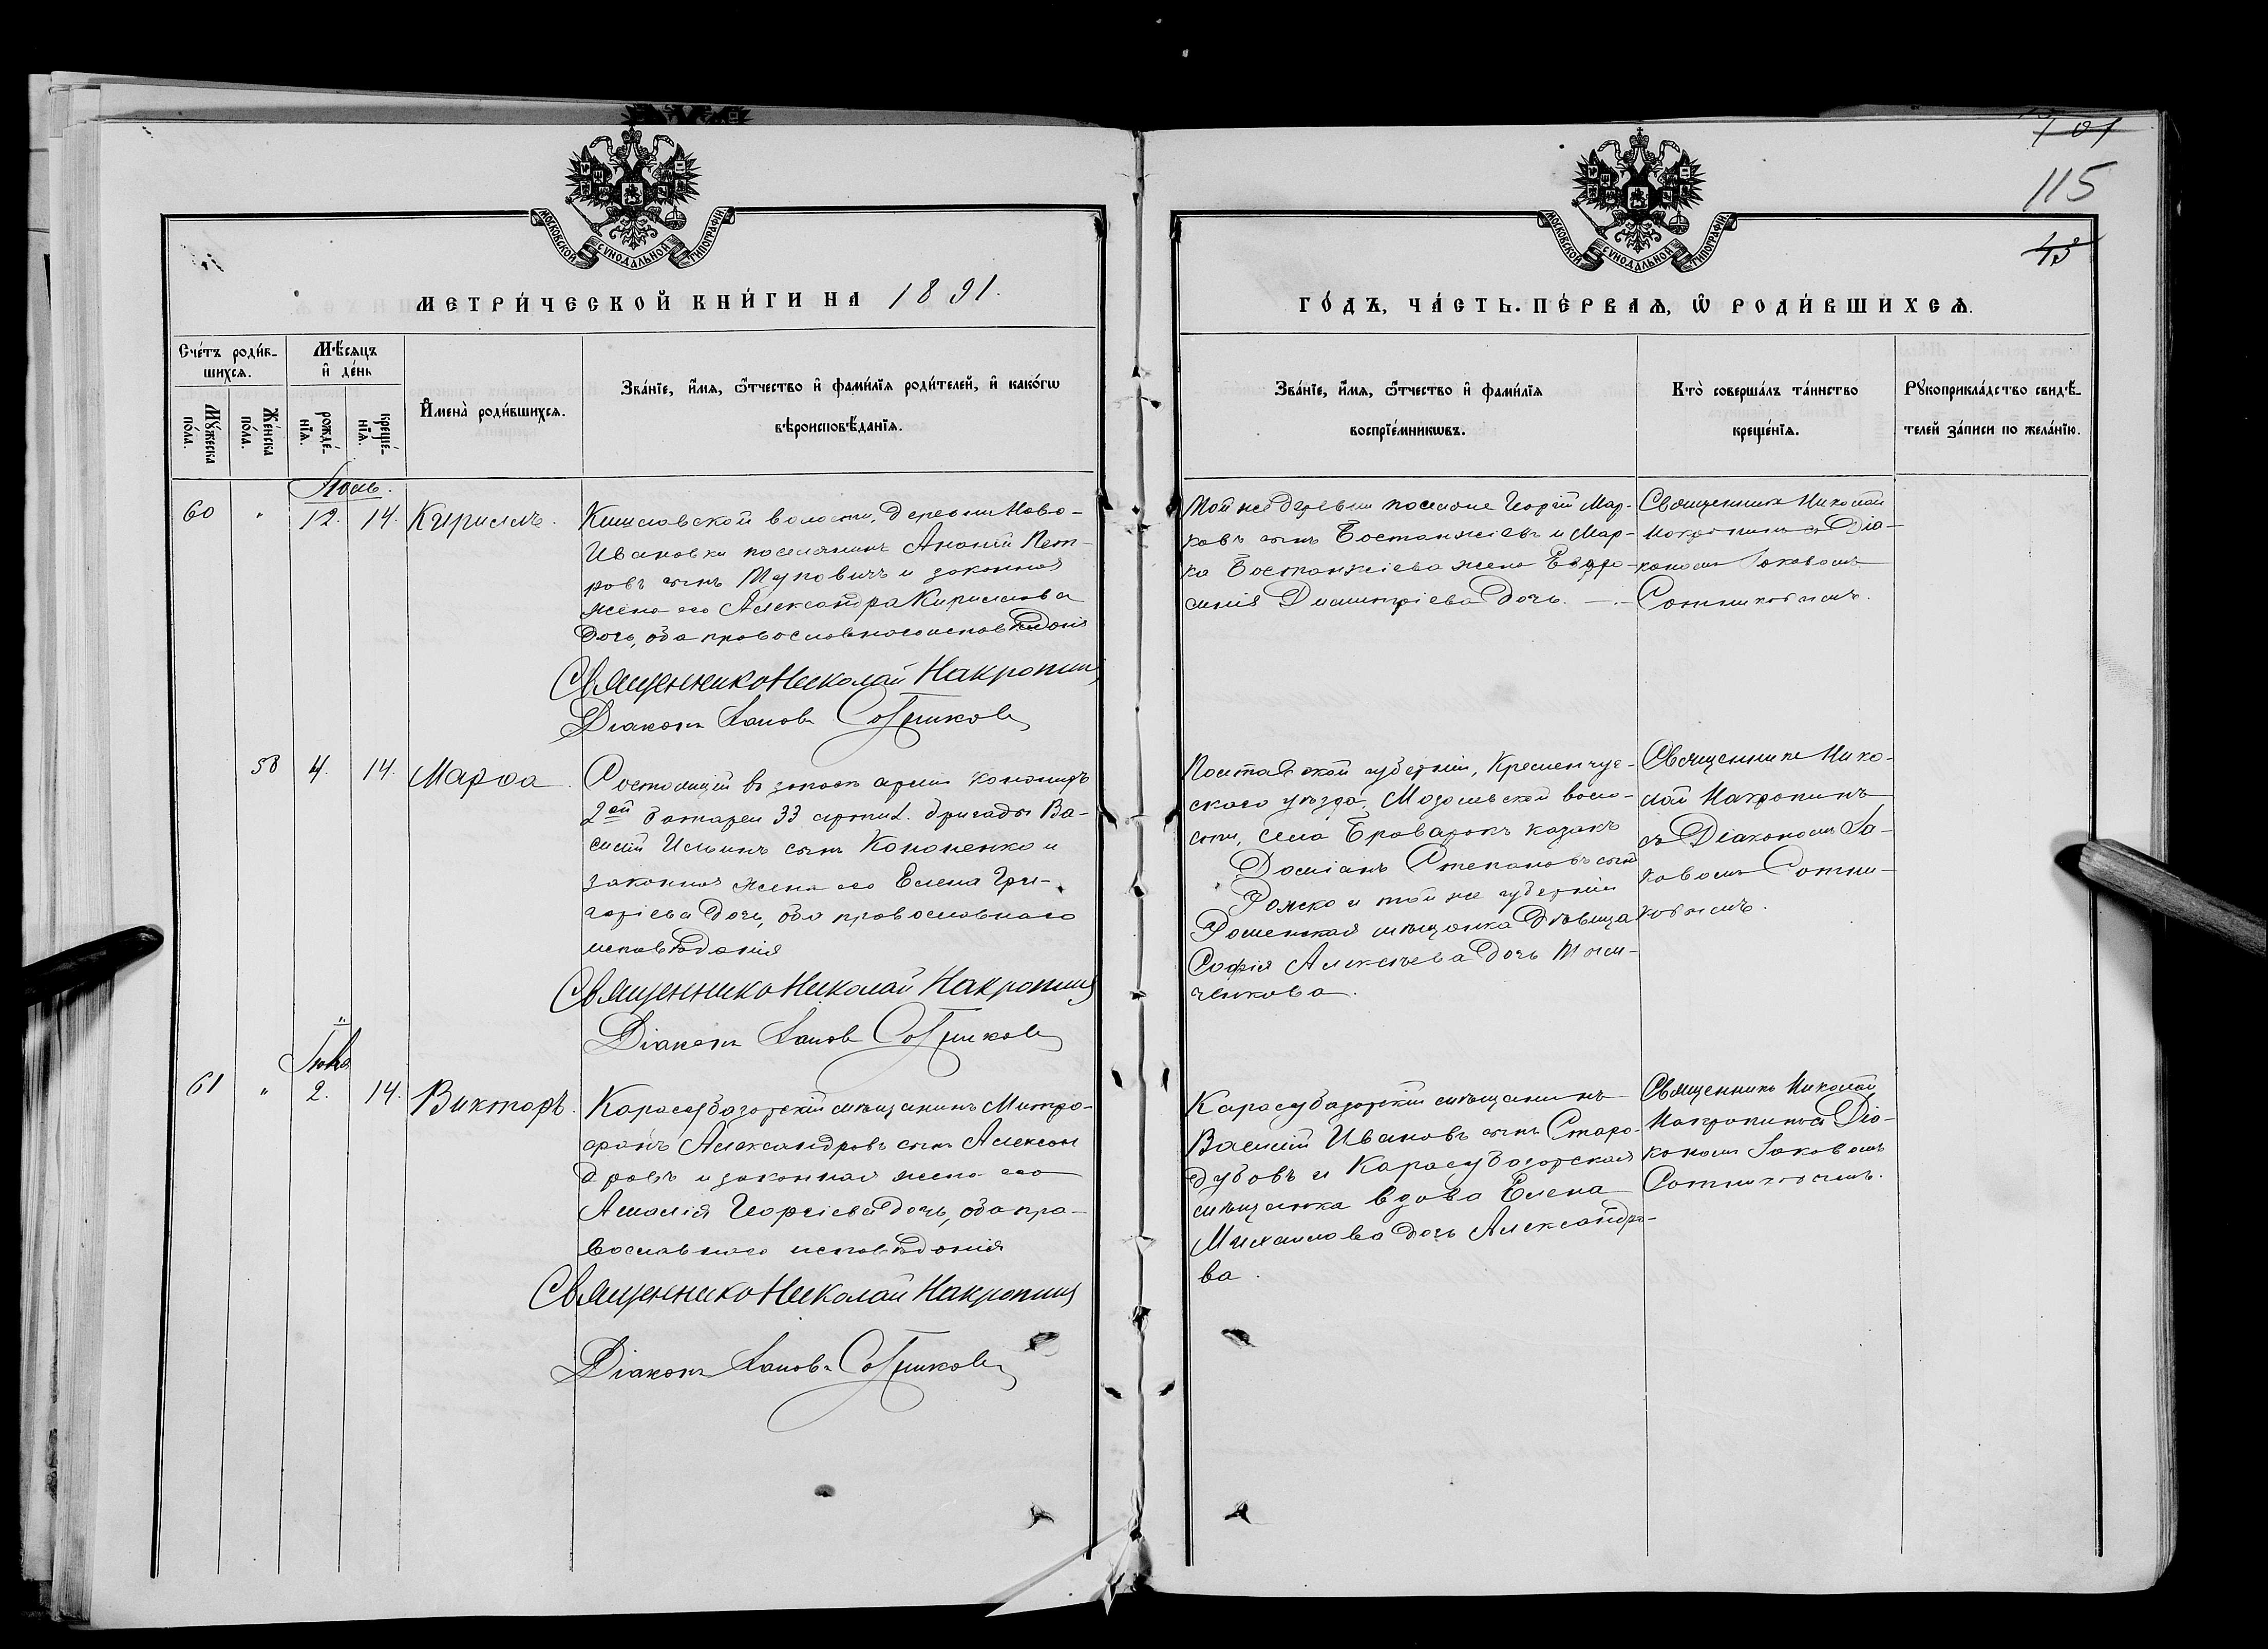 101
115
43
МОСКОВСКОЙ СѴНОДАЛЬНОЙ ТИПОГРАФІИ
МЕТРИ́ЧЕСКОЙ КНИ́ГИ НА 1891.
Сче́тъ роди́в-
шихсѧ.
Мѣ́сѧцъ
и҆ де́нь
Мꙋ́жеска
по́ла.
Же́нска
по́ла.
рожде́-
нїѧ.
креще́-
нїѧ.
И҆мена̀ роди́вшихсѧ.
Зва́нїе, и҆́мѧ, ѻ҆́тчество и҆ фами́лїѧ роди́телей, и҆ како́гѡ
вѣроисповѣ́данїѧ.
Іюль.
60 " 12. 14. Кириллъ.
Кишлавской волости, деревни Ново-
Ивановки поселянинъ Ананій Пет-
ровъ сынъ Туповичъ и законная
жена его Александра Кириллова
дочь, оба православнаго исповѣданія
Священникъ Николай Накропинъ
Діаконъ Іаковъ Сотниковъ
58 4. 14. Марѳа.
Состоящій въ запасѣ арміи канониръ
2ой батареи 33 артил. бригады Ва-
силій Ильинъ сынъ Кононенко и
законная жена его Елена Гри-
горіева дочь, оба православнаго
исповѣданія
Священникъ Николай Накропинъ
Діаконъ Іаковъ Сотниковъ
61 " 2. 14. Викторъ.
Карасубазарскій мѣщанинъ Митро-
фанъ Александровъ сынъ Алексан
дровъ и законная жена его
Амалія Георгіева дочь, оба пра-
вославнаго исповѣданія
Священникъ Николай Накропинъ
Діаконъ Іаковъ Сотниковъ
МОСКОВСКОЙ СѴНОДАЛЬНОЙ ТИПОГРАФІИ
ГО́ДЪ, ЧА́СТЬ ПЕ́РВАѦ, Ѡ҆ РОДИ́ВШИХСѦ.
Зва́нїе, и҆́мѧ, ѻ҆́тчество и҆ фами́лїѧ
воспрїе́мникѡвъ.
Кто̀ соверша́лъ та́инство
креще́нїѧ.
Рꙋкоприкла́дство свидѣ́-
телей за́писи по жела́нїю.
Той же деревни поселяне Георгій Мар-
ковъ сынъ Бостанжіевъ и Мар-
ка Бостанжіева жена Евфро-
синія Димитріева дочь.
Священникъ Николай
Накропинъ съ Діа-
кономъ Іаковомъ
Сотниковымъ.
Полтавской губерніи, Кременчуг-
скаго уѣзда, воло-
сти, села Броварокъ казакъ
Даміанъ Степановъ сынъ
Рожко и той же губерніи
Роменская мѣщанка дѣвица
Софія Алексѣева дочь Тим-
ченкова.
Священникъ Нико-
лай Накропинъ
съ Діакономъ Іа-
ковомъ Сотни-
ковымъ.
Карасубазарскій мѣщанинъ
Василій Ивановъ сынъ Старо-
дубовъ и Карасубазарская
мѣщанка вдова Елена
Михаилова дочь Александро-
ва.
Священникъ Николай
Накропинъ съ Діа-
кономъ Іаковомъ
Сотниковымъ.